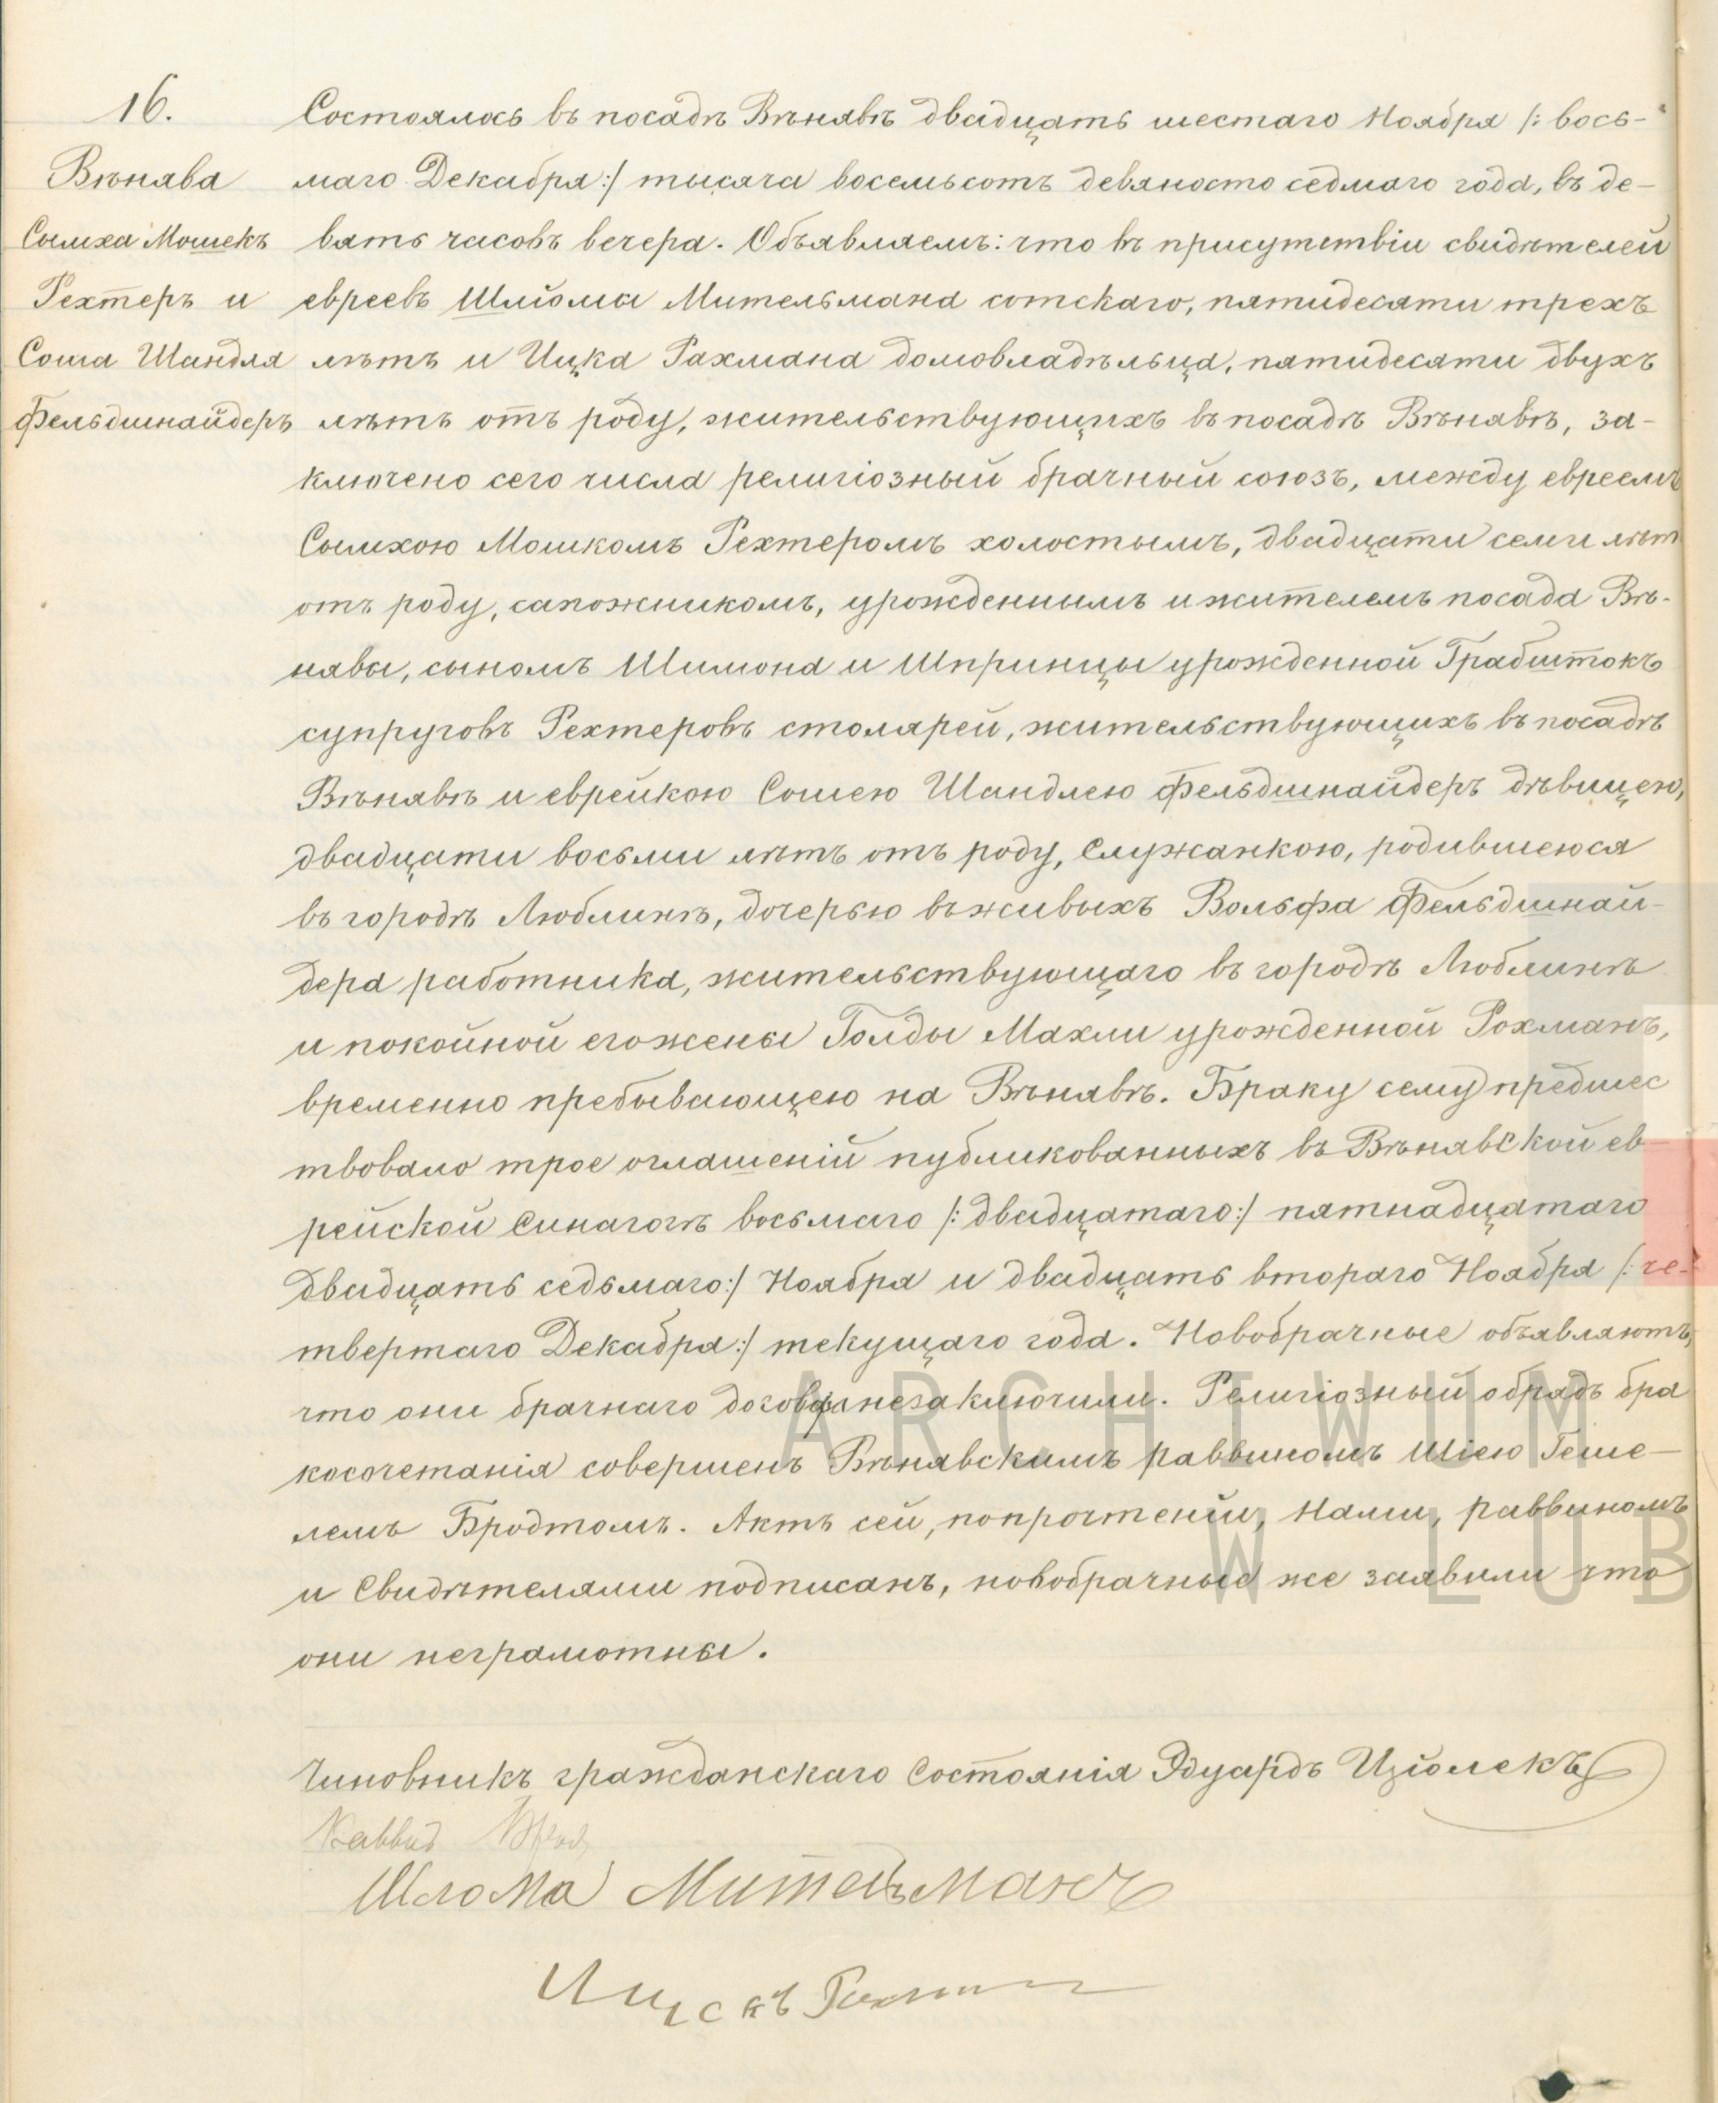 16.
Вѣнява
Сымха Мошекъ
Рехтеръ и
Соша Шандля
Фельдшнайдеръ
Состоялось въ посадѣ Вѣнявѣ двадцать шестаго Ноября /: вось-
маго Декабря :/ тысяча восемьсотъ девяносто седмаго года, въ де-
вять часовъ вечера. Объявляемъ: что въ присутствіи свидѣтелей
евреевъ Шлйомы Мительмана сотскаго, пятидесяти трехъ
лѣтъ и Ицка Рахмана домовладѣльца, пятидесяти двухъ
лѣтъ отъ роду, жительствующихъ въ посадѣ Вѣнявѣ, за-
ключено сего числа религіозный брачный союзъ, между евреемъ
Сымхою Мошкомъ Рехтеромъ холостымъ, двадцати семи лѣт
отъ роду, сапожникомъ, урожденнымъ и жителемъ посада Вѣ-
нявы, сыномъ Шимона и Шпринцы урожденной Грабштокъ
супруговъ Рехтеровъ столярей, жительствующихъ въ посадѣ
Вѣнявѣ и еврейкою Сошею Шандлею Фельдшнайдеръ дѣвицею,
двадцати восьми лѣтъ отъ роду, служанкою, родившеюся
въ городѣ Люблинѣ, дочерью въ живыхъ Вольфа Фельдшнай-
дера работника, жительствующаго въ городѣ Люблинѣ
и покойной его жены Голды Махли урожденной Рохманъ,
временно пребывающею на Вѣнявѣ. Браку сему предшес
твовало трое оглашеній публикованныхъ въ Вѣнявской ев-
рейской синагогѣ восьмаго /: двадцатаго :/ пятнадцатаго
двадцать седьмаго :/ Ноября и двадцать втораго Ноября /: че-
твертаго Декабря :/ текущаго года. Новобрачные объявляютъ,
что они брачнаго договора незаключили. Религіозный обрядъ бра
косочетанія совершенъ Вѣнявскимъ раввиномъ Шіею Геше-
лемъ Бродтомъ. Актъ сей, попрочтеніи, Нами, раввиномъ
и свидѣтелями подписанъ, новобрачные же заявили что
они неграмотны.
Чиновникъ гражданскаго состоянія Эдуардъ Ціолекъ
Шлома Мительманъ
Ицекъ Рахман
ARCHIWUM
W LUB